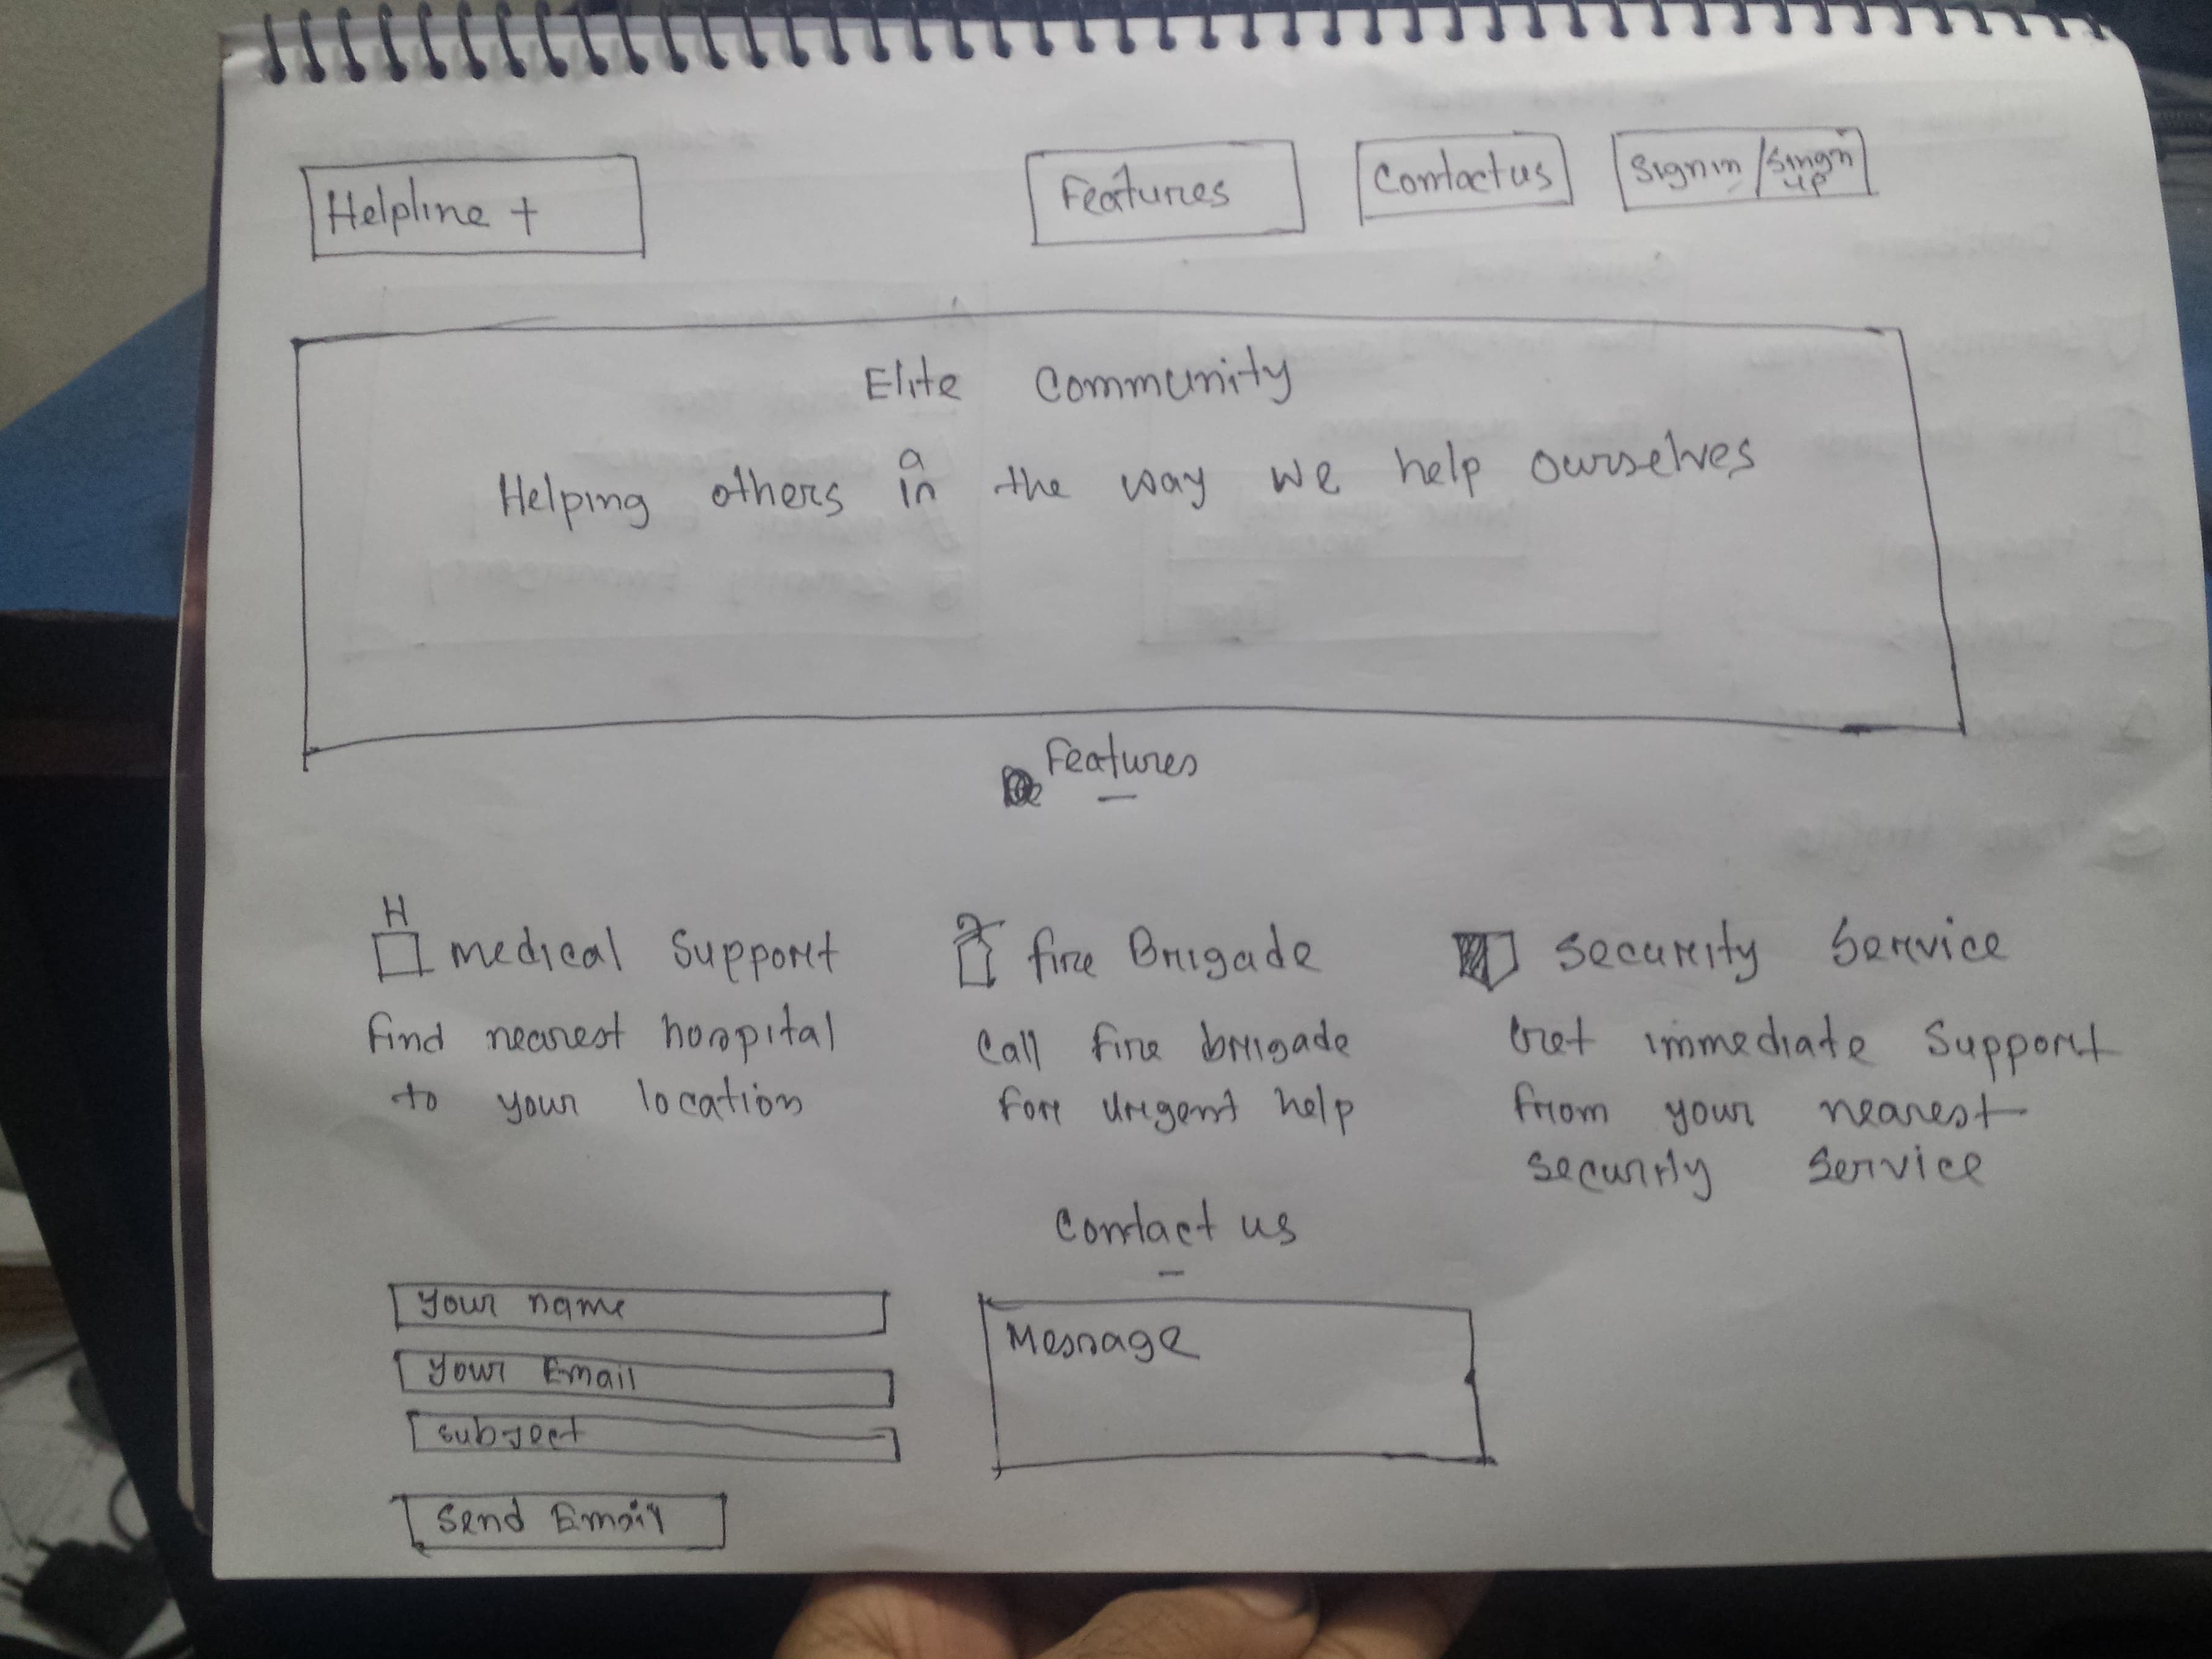 Helpline +
Features
Contact us
Signin / Singn up
Elite Community
Helping others in a the way we help ourselves
Features
H
medical Support
find nearest hospital
to your location
fire Brigade
Call fire brigade
For urgent help
Security Service
Get immediate Support
from your nearest
security Service
Contact us
Your name
Your Email
Subject
Send Email
Message